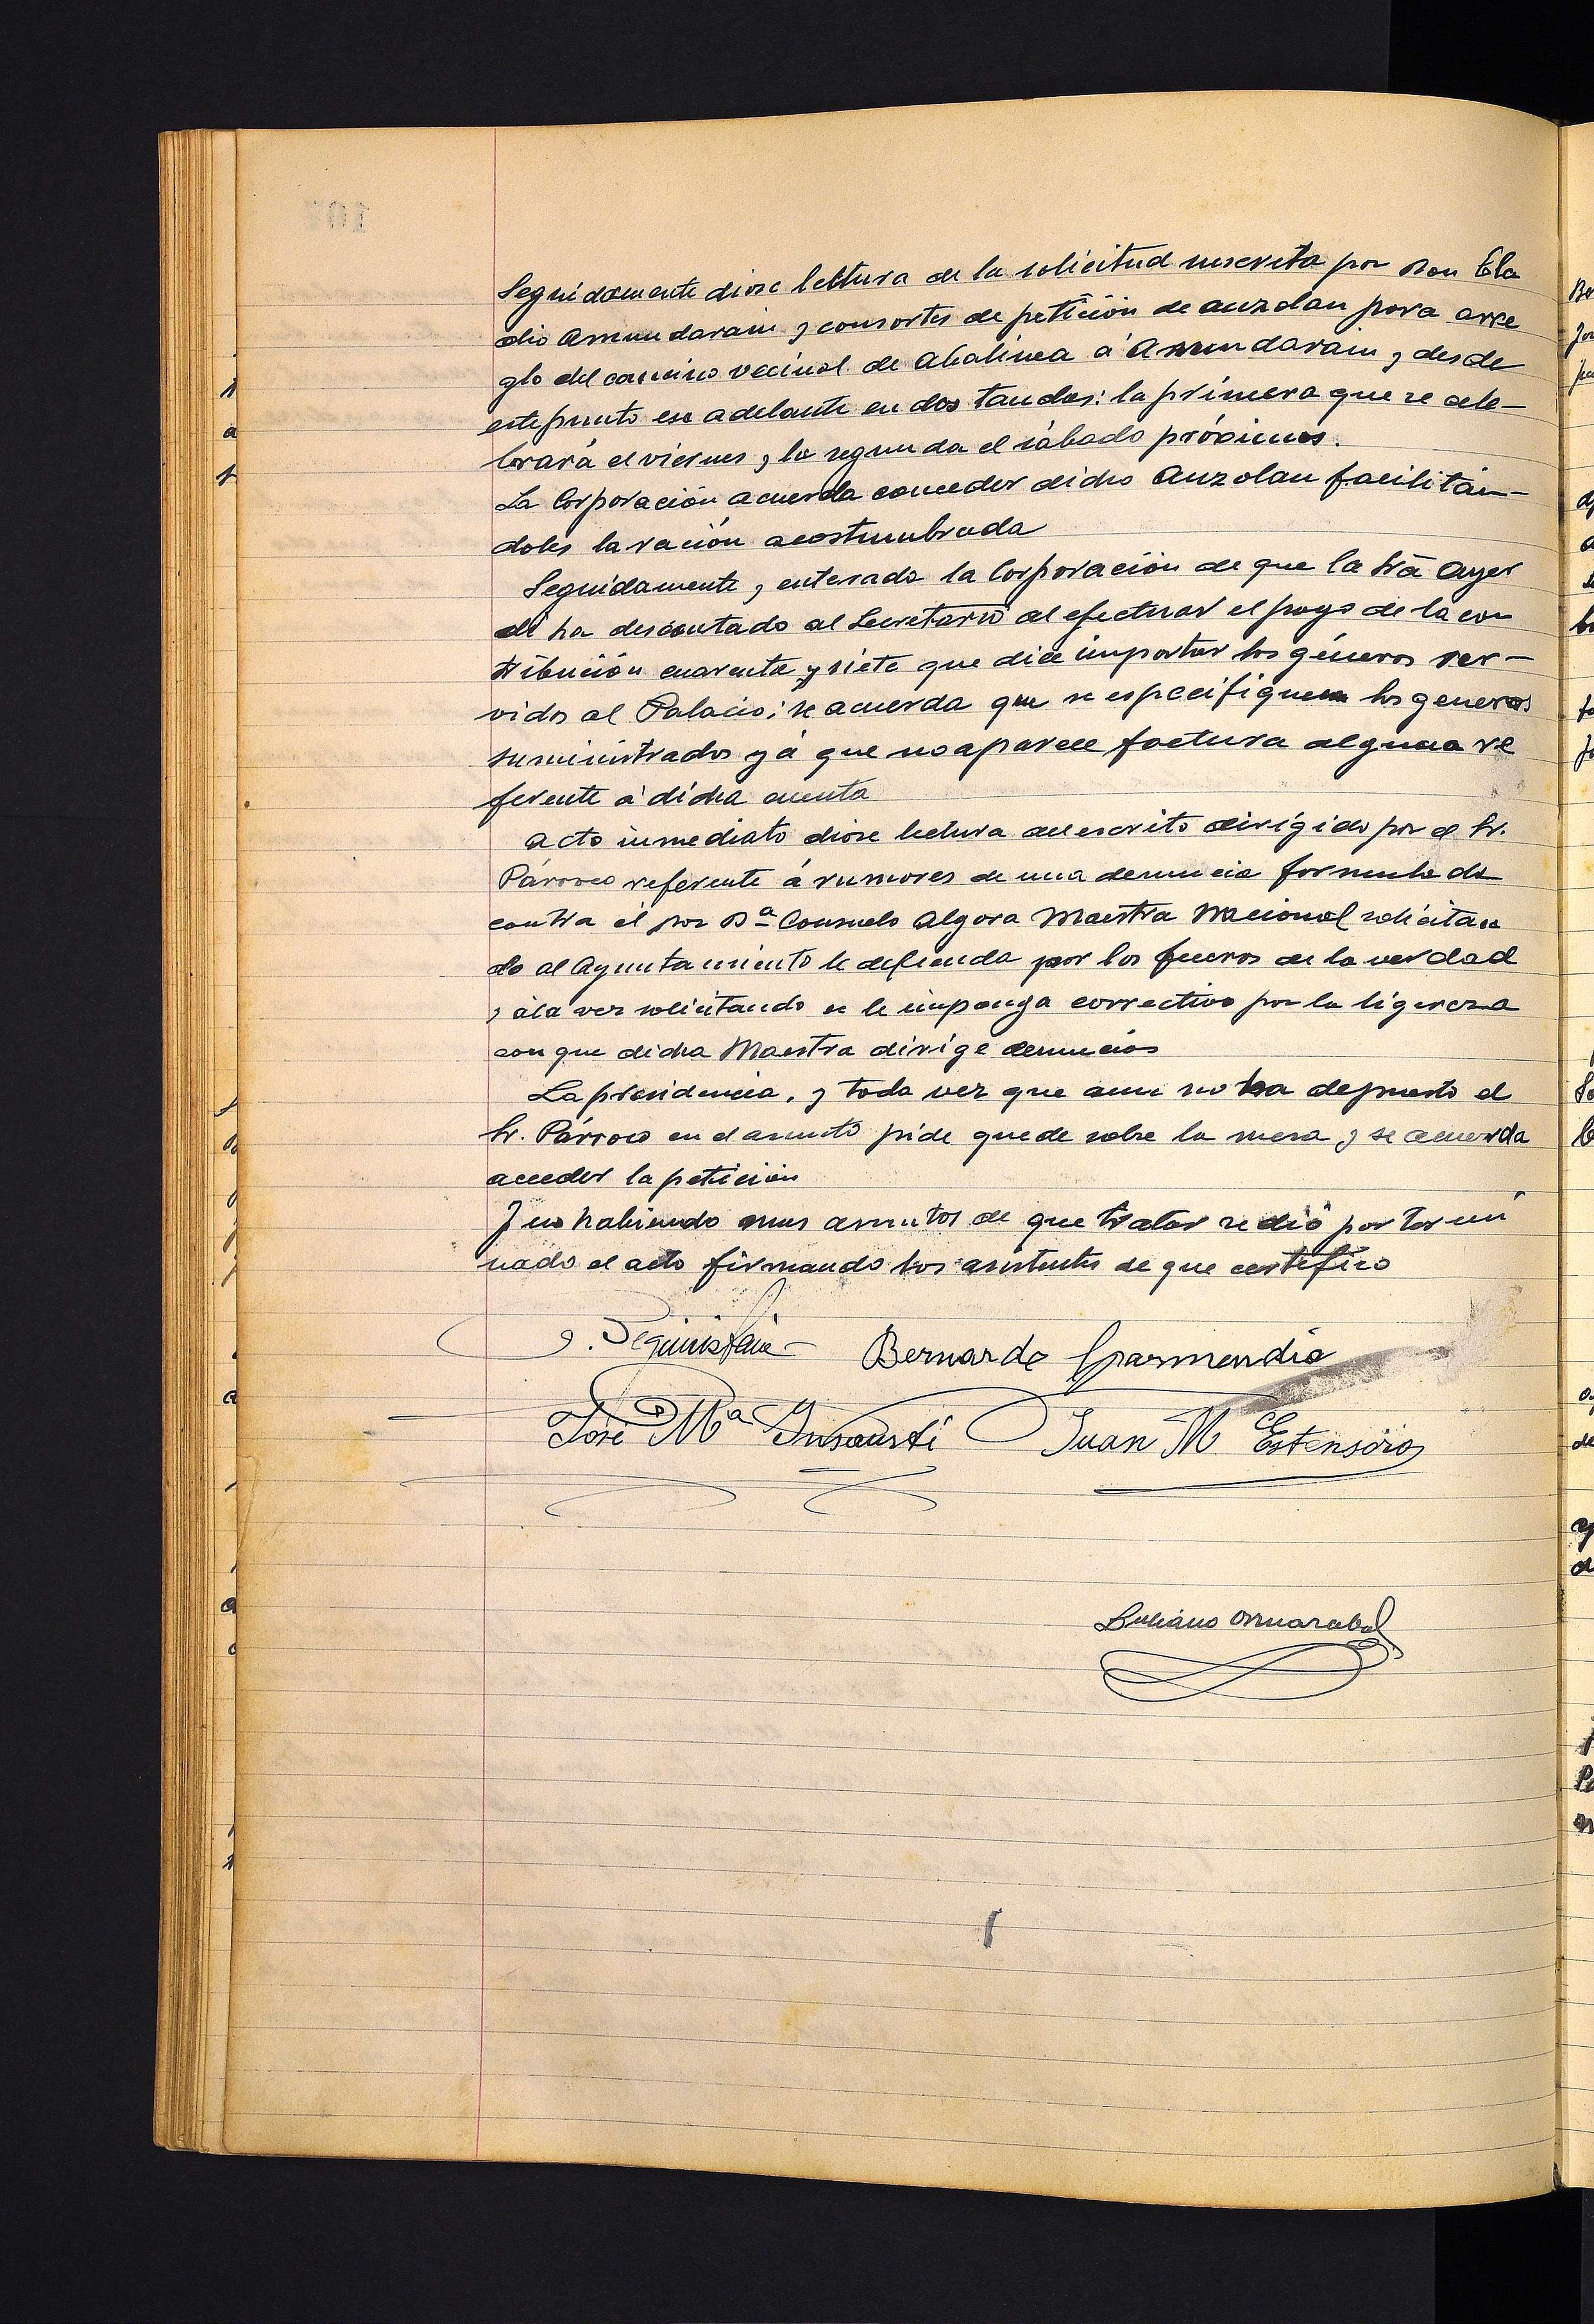 Seguidamente diose lectura de la solicitud suscrita por Don Ela
dio Amundarain y consortes de petición de auzolan para arre
glo del camino vecinal de Abalinea á Amundarain y desde
este punto en adelante en dos tandas: la primera que se cele-
brará el viernes y la segunda el sábado próximos.
La Corporación acuerda conceder dicho Auzolan facilitán-
doles la ración acostumbrada
Seguidamente y enterada la Corporación de que la Srā Ayer
dí ha descontado al Secretario al efectuar el pago de la con
tribución cuarenta y siete que dice importar los géneros ser-
vidos al Palacio; se acuerda que se especifiquen los generos
suministrados yá que no aparece factura alguna re
ferente á dicha cuenta
Acto inmediato diose lectura del escrito dirigido por el Sr.
Párroco referente á rumores de una denuncia formulada
contra él por Dª Consuelo Algora Maestra Nacional solicitan
do al Ayuntamiento le defienda por los fueros de la verdad
y á la vez solicitando se le imponga correctivo por la ligereza
con que dicha Maestra dirige denuncias
La presidencia, y toda vez que aun no ha depuesto el
Sr. Párroco en el asunto pide quede sobre la mesa y se acuerda
acceder la petición
Y no habiendo mas asuntos de que tratar se dió por termi
nado el acto firmando los asistentes de que certifico
Bernardo Garmendia
José Mª Insausti Juan M Estensoro